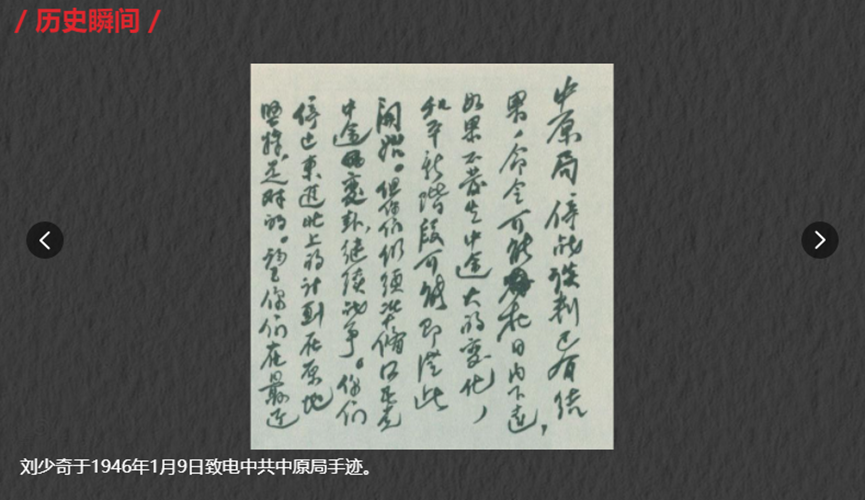 / 历史瞬间 /
中原局 停战谈判已有结
果,命令可能在日内下达,
如果不发生中途大的变化,
和平新阶段可能即从此
開始。但你们仍须准备
中途变卦,继续战争。你们
停止東進北上的计划在原地
坚持,是对的。望你们在最近
刘少奇于1946年1月9日致电中共中原局手迹。